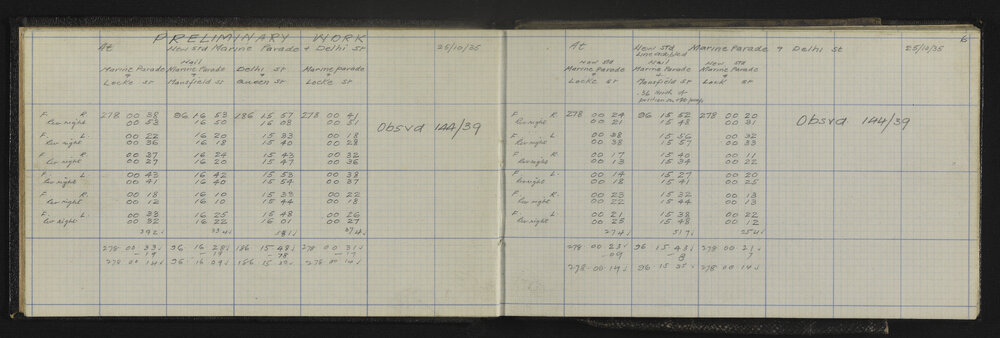 PRELIMINARY WORK
At New Std Marine Parade & Delhi St 25/10/35
Marine Parade & Locke St
Nail Marine Parade & Mansfield St
Delhi St & Queen St
Marine parade & Locke St
F. R. 278 00 38 96 16 53 186 15 57 278 00 41
Rev night 00 53 16 50 16 08 00 51
F. L. 00 22 16 20 15 33 00 18
Rev night 00 36 16 18 15 40 00 28
F. R. 00 37 16 24 15 43 00 32
Rev night 00 27 16 20 15 47 00 36
F. L. 00 43 16 42 15 53 00 38
Rev night 00 41 16 40 15 54 00 37
F. R. 00 18 16 10 15 39 00 22
Rev night 00 12 16 10 15 44 00 18
F. L. 00 33 16 25 15 48 00 26
Rev night 00 32 16 22 16 01 00 27
392 334 374
278 00 33 96 16 28 186 15 48 278 00 31
-19 -19 -17
278 00 14 96 16 09 186 15 278 00 14
Obsvd 144/39
At New Std Marine Parade & Delhi St 25/10/35
New Std Marine Parade & Locke St
New Std Line adopted
Nail Marine Parade & Mansfield St
.36 North of
New Std Marine Parade & Lock St
F. R. 278 00 24 96 15 52 278 00 20
Rev night 00 21 15 48 00 31
F. L. 00 38 15 56 00 32
Rev night 00 38 15 57 00 33
F. R. 00 17 15 40 00 11
Rev night 00 13 15 34 00 22
F. L. 00 14 15 27 00 20
Rev night 00 18 15 41 00 25
F. R. 00 23 15 32 00 13
Rev night 00 22 15 44 00 13
F. L. 00 21 15 38 00 22
Rev night 00 25 15 48 00 12
274 517 254
278 00 23 96 15 43 278 00 21
-09 -8 7
278 00 14 96 15 35 278 00 14
Obsvd 144/39